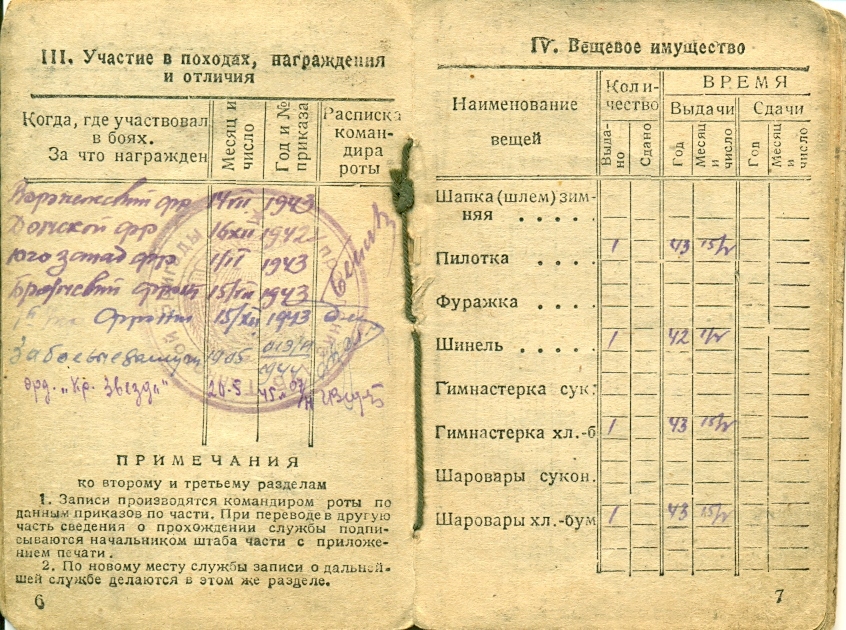 III. Участие в походах, награждения
и отличия
Когда, где участвовал
в боях.
За что награжден
Месяц и
число
Год и №
приказа
Расписка
коман-
дира
роты
фр 1943
Донской фр 16/XII 1942
Юго запад фр 1943
фронт 15/ 1943
фронт 15/XII 1943
За боевые заслуги 19/05 1944
орд. „Кр. Звезда" 26-5 45
ПРИМЕЧАНИЯ
ко второму и третьему разделам
1. Записи производятся командиром роты по
данным приказов по части. При переводе в другую
часть сведения о прохождении службы подпи-
сываются начальником штаба части с приложе-
нием печати.
2. По новому месту службы записи о дальней-
шей службе делаются в этом же разделе.
6
IV. Вещевое имущество
Наименование
вещей
Коли-
чество
ВРЕМЯ
Выдачи
Сдачи
Выда-
но
Сдано
Год
Месяц
и
число
Год
Месяц
и
число
Шапка (шлем) зим-
няя . . . . .
Пилотка . . . . 1 43
Фуражка . . . .
Шинель . . . . . 1 42
Гимнастерка сук.
Гимнастерка хл.-б 1 43
Шаровары сукон.
Шаровары хл.-бум 1 43
7